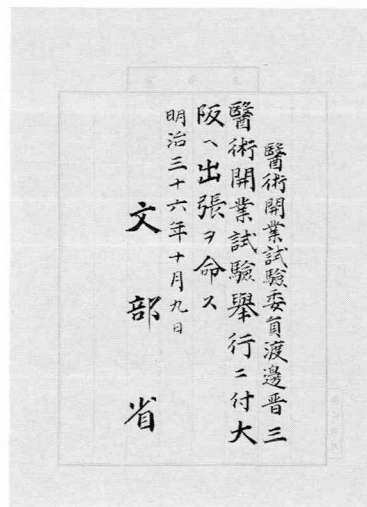 醫術開業試驗委員渡邊晋三
醫術開業試驗舉行ニ付大
阪ヘ出張ヲ命ス
明治三十六年十月九日
文部省